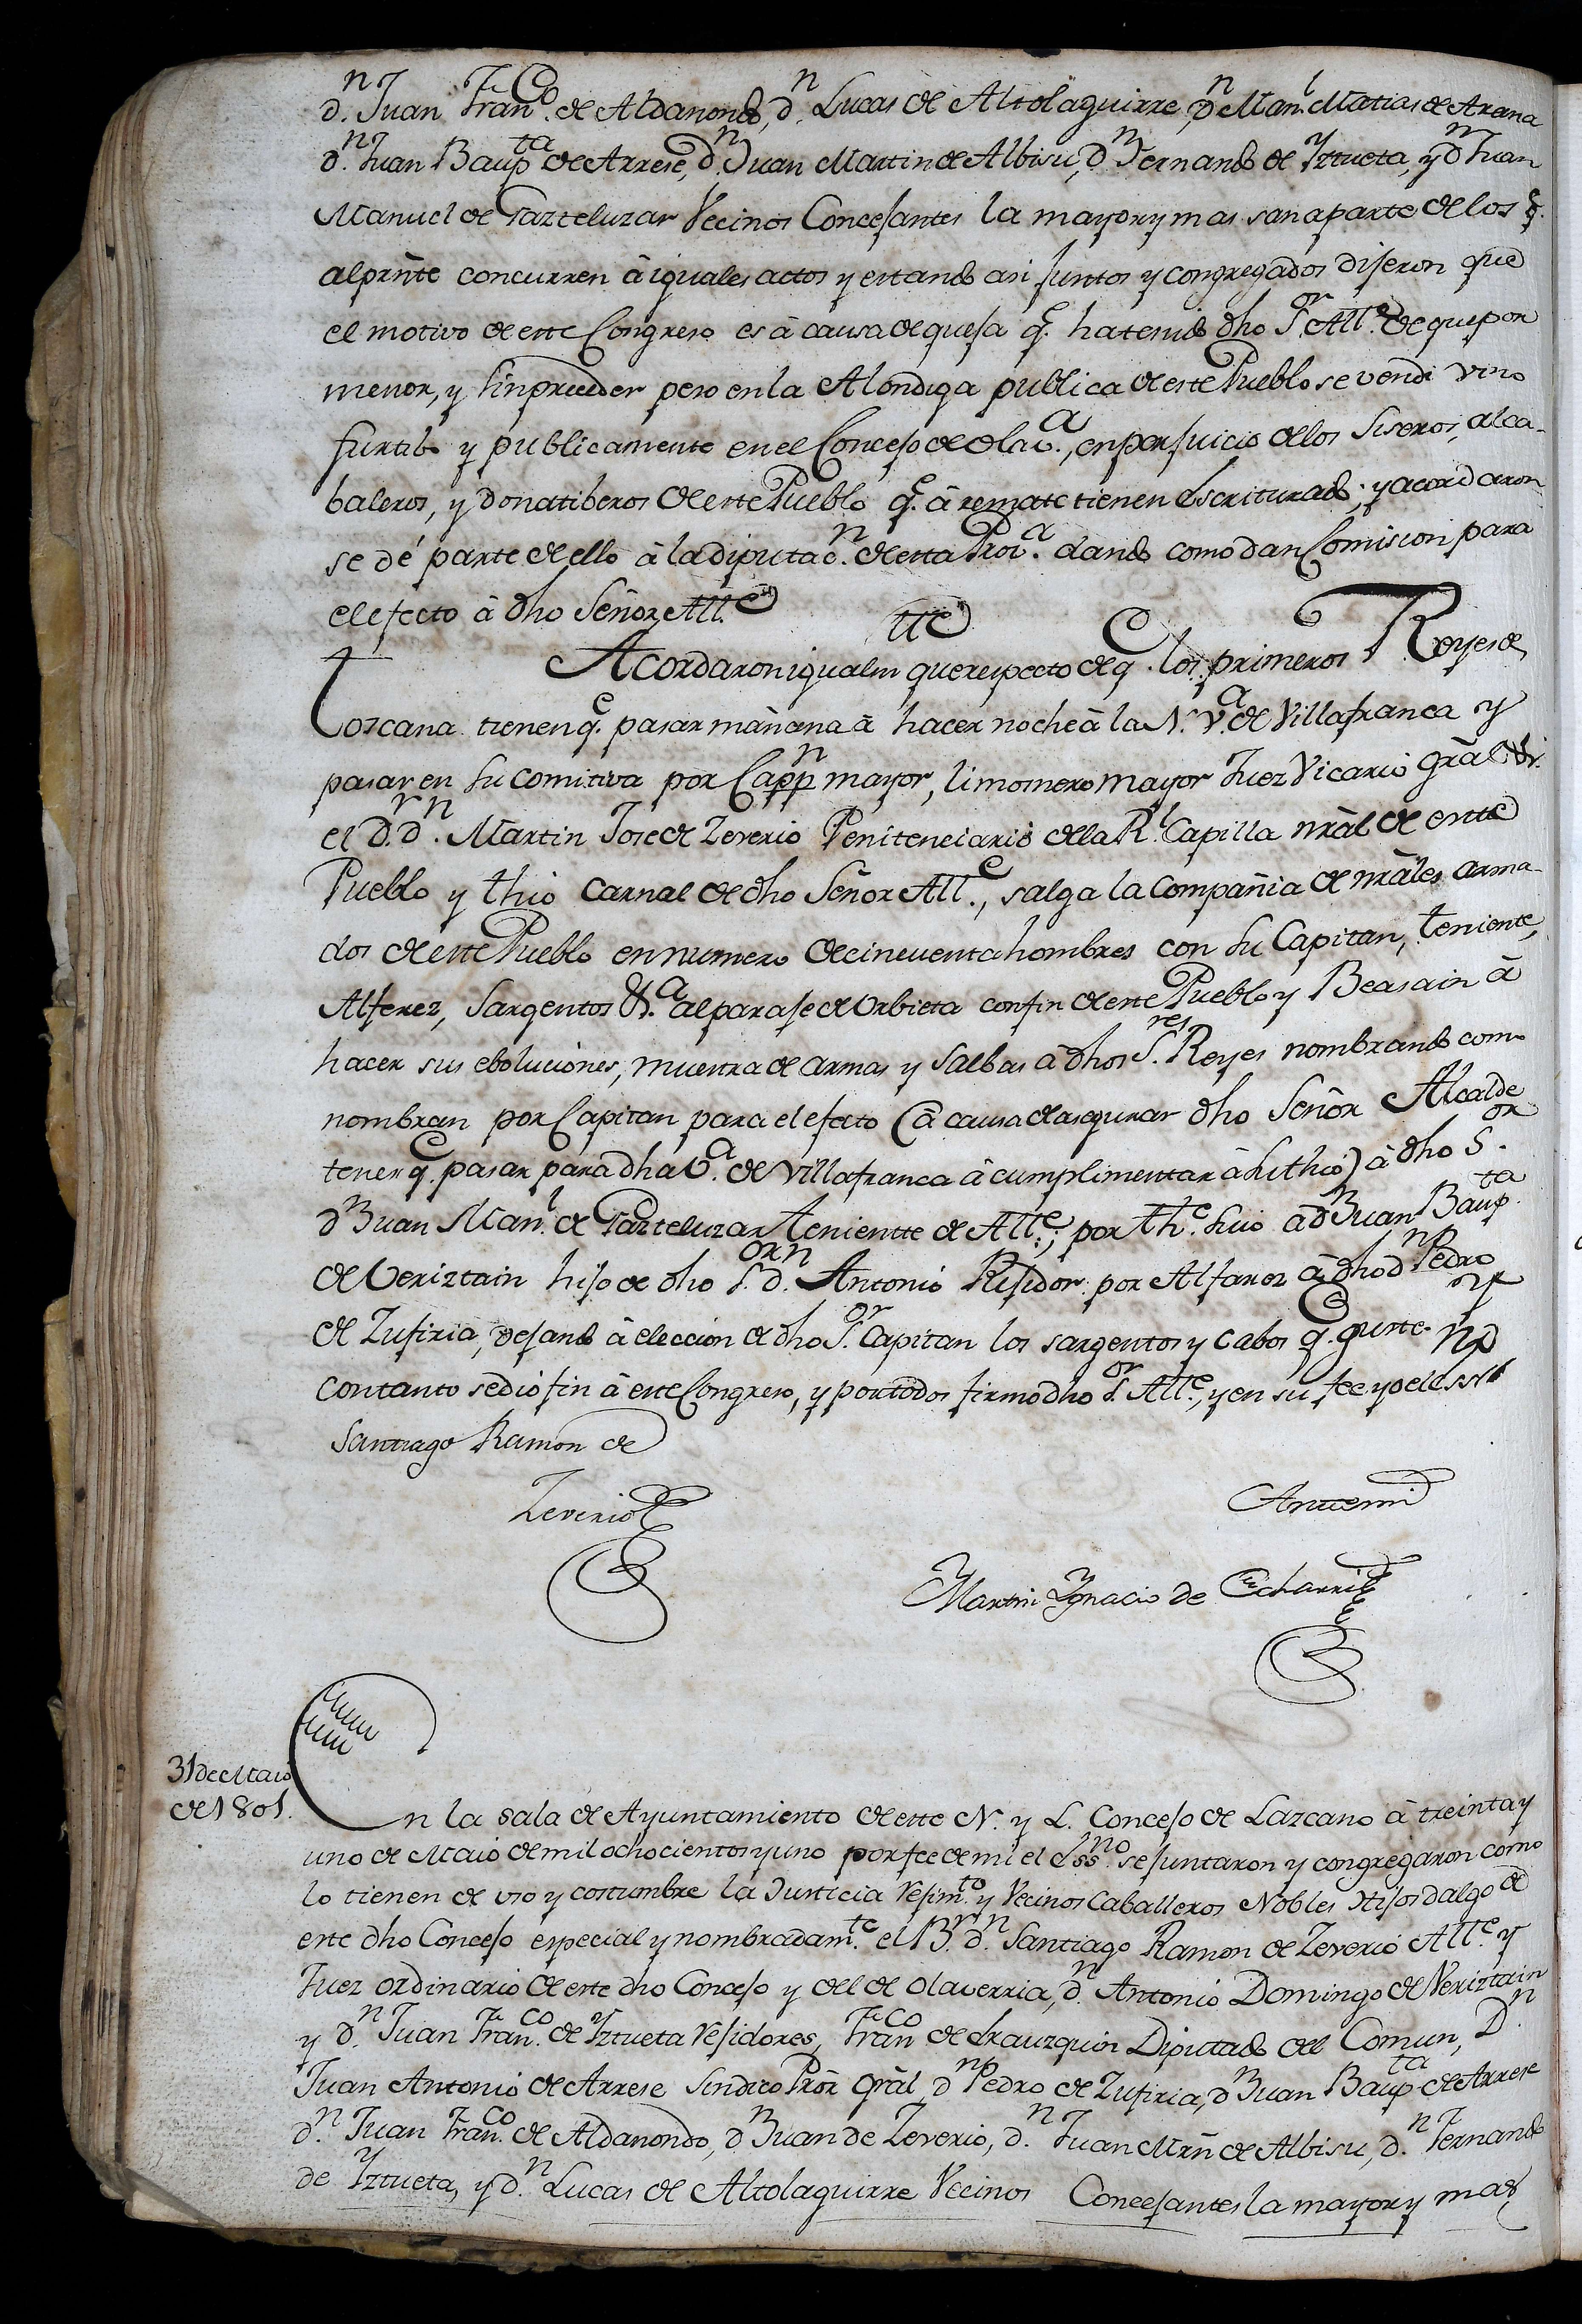 d.n Juan Fran.co de Aldanondo, d.n Lucas de Altolaguirre, d.n Man.l Matias de Arana
d.n Juan Baup.ta de Arrese, d.n Juan Martin de Albisu, d.n Fernando de Yztueta, y d.n Juan
Manuel de Gazteluzar Vecinos Concejantes la mayor y mas sana parte de los q.e
al prñte concurren â iguales actos y estando asi juntos y congregados dijeron que
el motivo de este Congreso es â causa de queja q.e ha tenido dho S.or All.e de que por
menor, y sin preceder peso en la Alondiga publica de este Pueblo se vendi vino
furtibo y publicamente en el Concejo de Olav.a, en perjuicio de los Siseros, alca-
baleros, y donatiberos de este Pueblo q.e â remate tienen Escriturado; y acordaron
se dé parte de ello â la diputac.n de esta Prov.a dando como dan Comision para
el efecto â dho Señor All.e
Acordaron igualm.te que respecto de q.e los primeros Reyes de
Toscana tienen q.e pasar mañana â hacer noche â la N. V.a de Villafranca y
pasar en su comitiva por Capp.n mayor, limosnero mayor Juez Vicario grãl &.
el D.r d.n Martin Jose de Zeverio Penitenciario de la R.l Capilla nrãl de este
Pueblo y thio carnal de dho Señor All.e, salga la Compañia de nrãles arma-
dos de este Pueblo en numero de cincuenta hombres con su Capitan, teniente,
Alferez, Sargentos &.a al paraje de Urbieta confin de este Pueblo y Beasain â
hacer sus eboluciones, muestra de armas y salbas â dhos S.res Reyes nombrando como
nombran por Capitan para el efecto (â causa de asegurar dho Señor Alcalde
tener q.e pasar para dha V.a de Villafranca â cumplimentar â su thio) â dho S.or
d.n Juan Man.l de Gazteluzar tenientte de All.e; por th.e suio â d.n Juan Baup.ta
de Veriztain hijo de dho S.or d.n Antonio Rejidor: por Alferez â dho d.n Pedro
de Zufiria, dejando â eleccion de dho S.or Capitan los sargentos y cabos q.e guste.
Con tanto se dió fin â este Congreso, y por todos firmó dho S.or All.e, y en su fee yo el ess.no
Santiago Ramon de
Zeverio
Antemi
Martin Ygnacio de Echarri
31 de Maio
de 1801.
En la sala de Ayuntamiento de este N. y L. Concejo de Lazcano â treinta y
uno de Maio de mil ochocientos y uno por fee de mi el Ess.no se juntaron y congregaron como
lo tienen de uso y costumbre la Justicia Rejim.to y Vecinos Caballeros Nobles Hijosdalgo de
este dho Concejo especial y nombradam.te el B.r d.n Santiago Ramon de Zeverio All.e y
Juez ordinario de este dho Concejo y del de Olaverria, d.n Antonio Domingo de Veriztain
y d.n Juan Fran.co de Yztueta Rejidores, Fran.co de Yrauzquin Diputado del Comun, D.n
Juan Antonio de Arrese Sindico Prõr Grãl, d.n Pedro de Zufiria, d.n Juan Baup.ta de Arrese
d.n Juan Fran.co de Aldanondo, d.n Juan de Zeverio, d.n Juan Mrñ de Albisu, d.n Fernando
de Yztueta, y d.n Lucas de Altolaguirre Vecinos Concejantes la mayor y mas